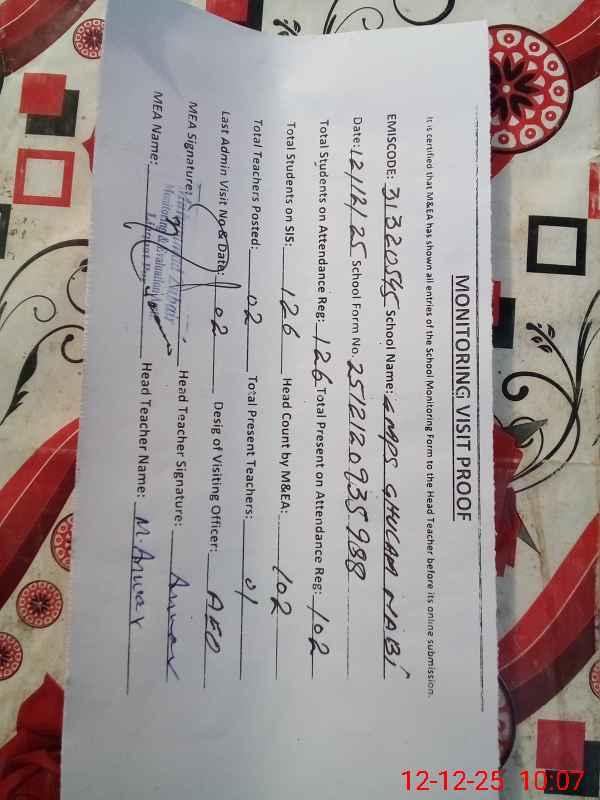 MONITORING VISIT PROOF
It is certified that M&EA has shown all entries of the School Monitoring Form to the Head Teacher before its online submission.
EMISCODE: 31320545 School Name: GMPS GHULAM NABI
Date: 12/12/25 School Form No. 2512120935988
Total Students on Attendance Reg: 126 Total Present on Attendance Reg: 102
Total Students on SIS: 126 Head Count by M&EA: 102
Total Teachers Posted: 02 Total Present Teachers: 01
Last Admin Visit No & Date: 02 Desig of Visiting Officer: AEO
MEA Signature: Head Teacher Signature: Anwar
Monitoring & Evaluation
MEA Name: Head Teacher Name: M. Anwar
12-12-25 10:07